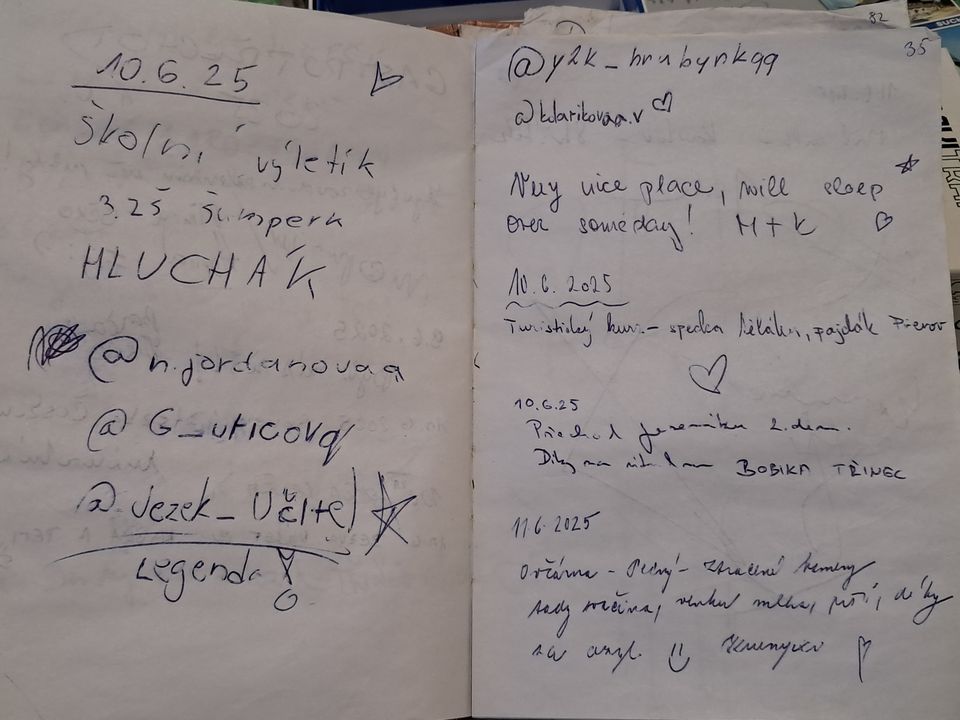 10.6.25
školní výletík
3.ZŠ Šumperk
HLUCHÁK
@n.jordanovaa
@G_uricova
@Jezek_Učitel
Legenda!
82
35
@y2k_hrubynkqq
@klarikovaa.v
Very nice place, will sleep
over someday! M+K
10.6.2025
Turistický kurz - spedka lékáku, pajdák Přerov
10.6.25
Přechod Jeseníku 2. den.
Díky za BOBIKA TŘINEC
11.6.2025
Ovčárna - Pecný - Ztracené kameny
tady svačina, venku mlha, prší, díky
za azyl.